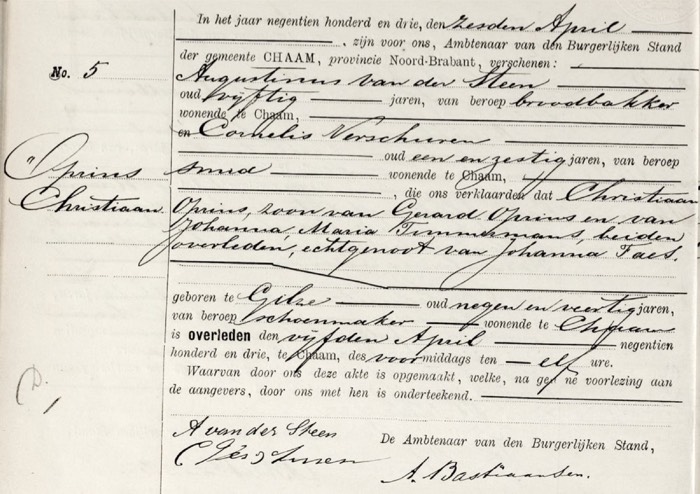 In het jaar negentien honderd en drie, den zesden April
, zijn voor ons, Ambtenaar van den Burgerlijken Stand
der gemeente CHAAM, provincie Noord-Brabant, verschenen:
No. 5
Augustinus van der Steen
oud vijftig jaren, van beroep broodbakker
wonende te Chaam,
en Cornelis Verschuren
oud een en zestig jaren, van beroep
smid wonende te Chaam,
, die ons verklaarden dat Christiaan
Oprins
Christiaan
Oprins, zoon van Gerard Oprins en van
Johanna Maria Timmermans, beiden
overleden, echtgenoot van Johanna Faes.
geboren te Gilze oud negen en veertig jaren,
van beroep schoenmaker wonende te Chaam
is overleden den vijfden April negentien
honderd en drie, te Chaam, des voormiddags ten elf ure.
Waarvan door ons deze akte is opgemaakt, welke, na ge ne voorlezing aan
de aangevers, door ons met hen is onderteekend.
A van der Steen
De Ambtenaar van den Burgerlijken Stand,
A. Bastiaansen.